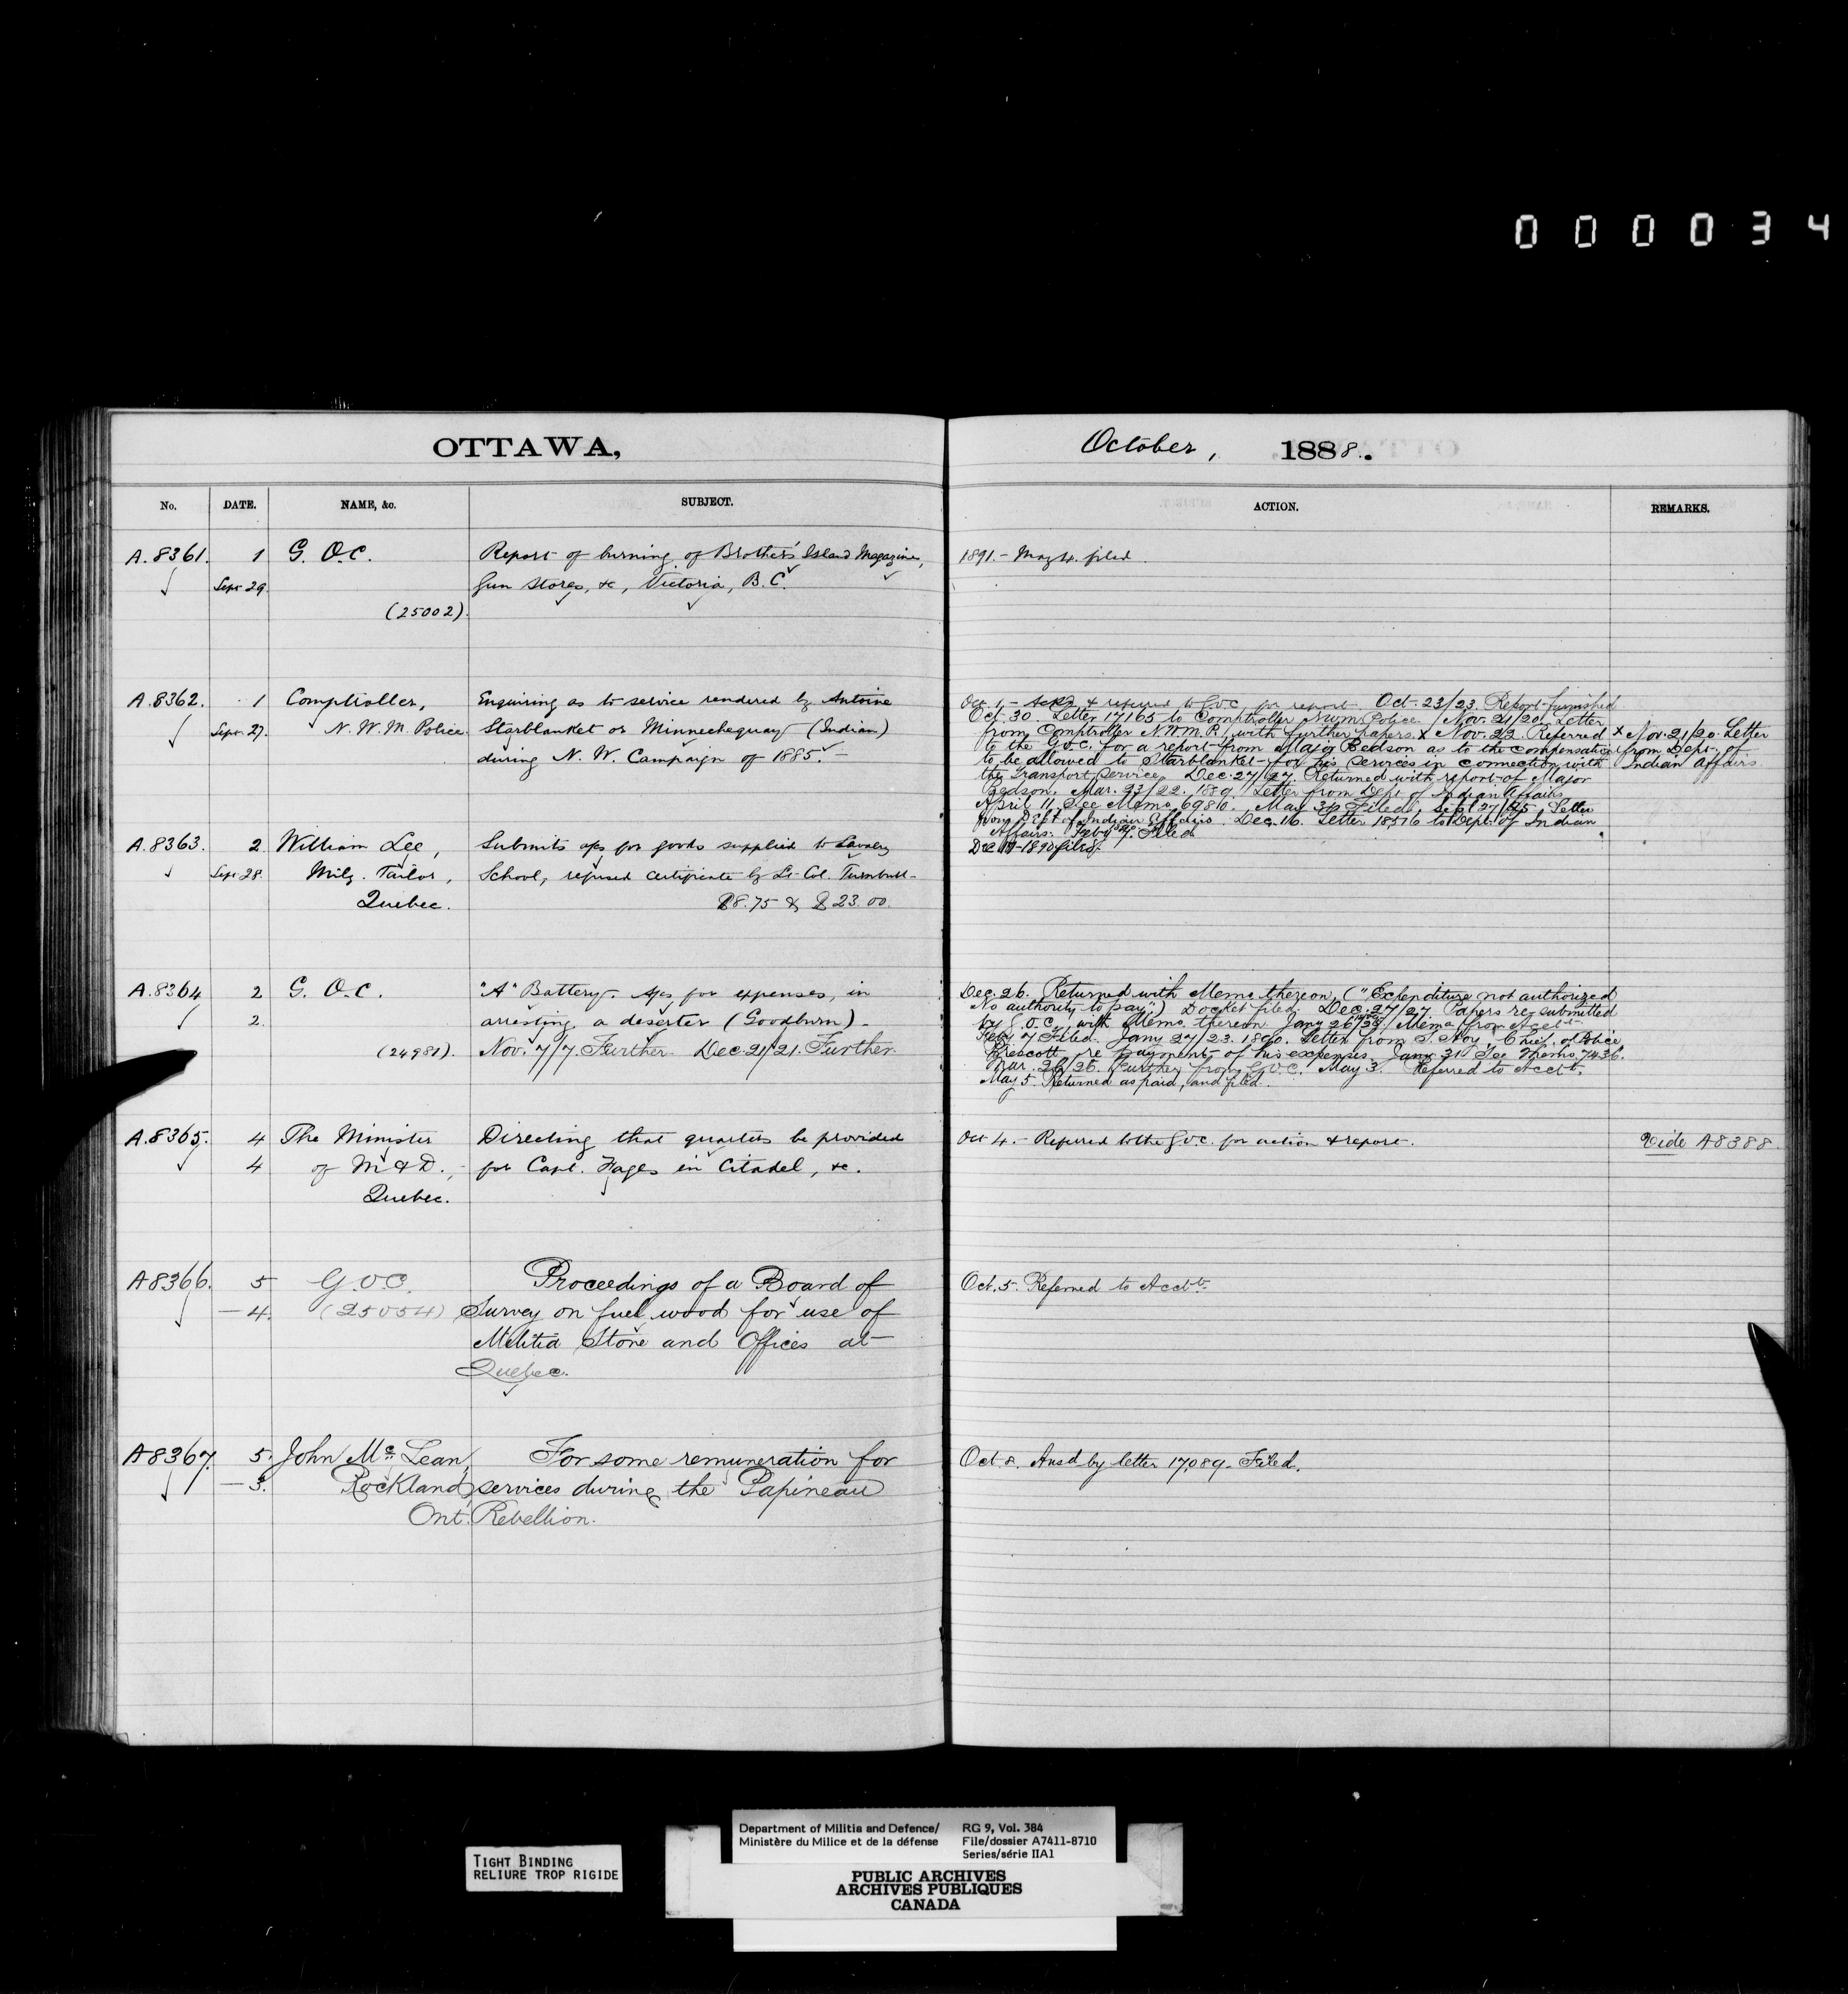 000034
OTTAWA,
October, 1888.
No. DATE. NAME, &c. SUBJECT. ACTION. REMARKS.
A.8361. 1 G. O.C. Report of burning of Brothers' Island Magazine,
Sept 29. Gun Stores, &c, Victoria, B.C.
(25002).
1891.- May 4. filed
A.8362. 1 Comptroller, Enquiring as to service rendered by Antoine
Sept 27. N. W. M. Police. Starblanket or Minnechequay (Indian)
during N. W. Campaign of 1885.-
Oct 1,- Ackd & referred to G.O.C. for report. Oct. 23/23. Report furnished
Oct. 30. Letter 17165 to Comptroller N.W.M. Police. Nov. 21/20. Letter
from Comptroller N.W.M.P. with further papers. x Nov. 22. Referred
to the G.O.C. for a report from Major Bedson as to the compensation
to be allowed to Starblanket for his services in connection with
the Transport Service. Dec. 27/27. Returned with report of Major
Bedson. Mar. 23/22. 1889. Letter from Dept. of Indian Affairs
April 11. See Memo 6980. May 30 Filed. Sept 27/25. Letter
from Dept of Indian Affairs. Dec. 16. Letter 18576 to Dept. of Indian
Affairs. Feby 7. Filed
x Nov. 21/20. Letter
from Dept. of
Indian Affairs.
A.8363. 2 William Lee, Submits a/cs for goods supplied to Cavalry
Sept 28. Mily. Tailor, School, refused certificate by Lt. Col. Turnbull-
Quebec. $8.75 & $23.00.
Dec 17-1890 filed.
A.8364 2 G. O.C. "A" Battery. A/cs for expenses, in
2. arresting a deserter (Goodburn).
(24981). Nov. 7/7. Further. Dec. 21/21. Further
Dec. 26. Returned with Memo thereon, ("Expenditure not authorized
No authority to pay".) Docket filed. Dec. 27/27. Papers re-submitted
by G.O.C. with Memo. thereon Jany 26/29 Memo from Acctt
Feby 7 Filed. Jany 27/23. 1890. Letter from Chief of Police,
Prescott re payment of his expenses. Jany 31 See Memo. 7436.
Mar. 26/26. Further from G.O.C. May 3. Referred to Acctt.
May 5. Returned as paid, and filed.
A.8365. 4 The Minister Directing that quarters be provided
4 of M & D., for Capt. Fages in Citadel, &c.
Quebec.
Oct 4.- Referred to the G.O.C. for action & report.
Vide A8388.
A8366. 5 G.O.C. Proceedings of a Board of
- 4. (25054) Survey on fuel wood for use of
Militia Store and Offices at
Quebec.
Oct. 5. Referred to Acctt.
A8367. 5. John Mc Lean, For some remuneration for
- 3. Rockland, services during the Papineau
Ont. Rebellion.
Oct. 8. Ansd by letter 17,089. Filed.
Department of Militia and Defence/
Ministère du Milice et de la défense
RG 9, Vol. 384
File/dossier A7411-8710
Series/série IIA1
TIGHT BINDING
RELIURE TROP RIGIDE
PUBLIC ARCHIVES
ARCHIVES PUBLIQUES
CANADA